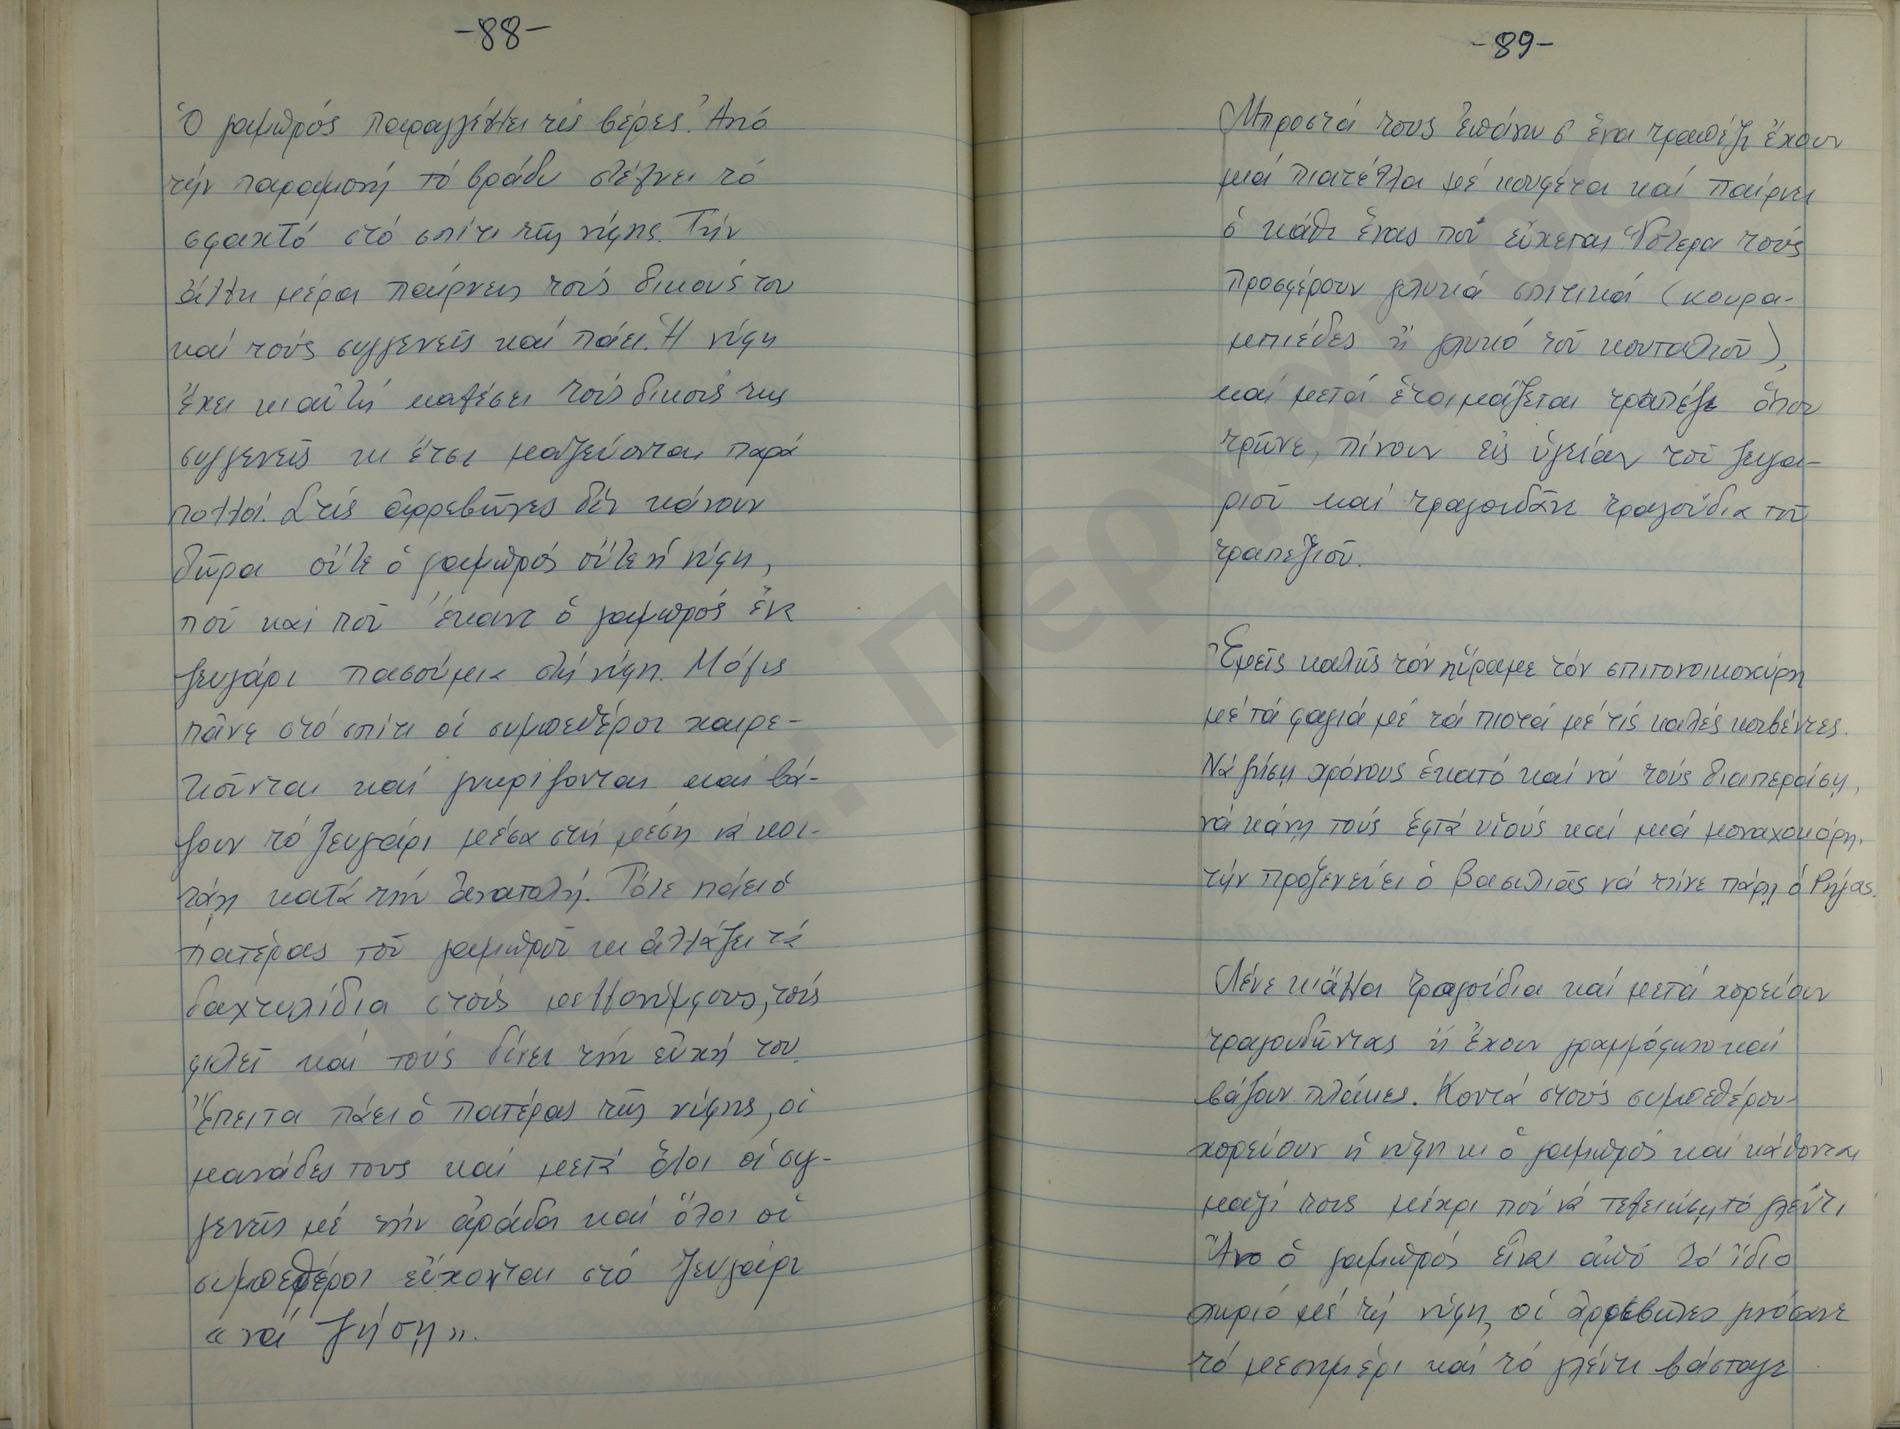 -88-
Ὁ γαμπρός παραγγέλλει τίς βέρες. Ἀπό
τήν παραμονή τό βράδυ στέλνει τό
σφαχτό στό σπίτι τῆς νύφης. Τήν
ἄλλη μέρα παίρνει τούς δικούς του
καί τούς συγγενεῖς καί πάει. Ἡ νύφη
ἔχει κι αὐτή καλέσει τούς δικούς της
συγγενεῖς κι ἔτσι μαζεύονται παρά
πολλοί. Στίς ἀρρεβῶνες δέν κάνουν
δῶρα οὔτε ὁ γαμπρός οὔτε ἡ νύφη,
ποῦ καί ποῦ ἔκανε ὁ γαμπρός ἕνα
ζευγάρι πασούμια στή νύφη. Μόλις
πᾶνε στό σπίτι οἱ συμπεθέροι χαιρε-
τιοῦνται καί γνωρίζονται καί βά-
ζουν τό ζευγάρι μέσα στή μέση νά κοι-
τάη κατά τήν ἀνατολή. Τότε πάει ὁ
πατέρας τοῦ γαμπροῦ κι ἀλλάζει τά
δαχτυλίδια στούς μελλονύμφους, τούς
φιλεῖ καί τούς δίνει τήν εὐχή του.
Ἔπειτα πάει ὁ πατέρας τῆς νύφης, οἱ
μανάδες τους καί μετά ὅλοι οἱ συγ-
γενεῖς μέ τήν ἀράδα καί ὅλοι οἱ
συμπεθέροι εὔχονται στό ζευγάρι
«νά ζήση».
-89-
Μπροστά τους ἐπάνω σ ἕνα τραπέζι ἔχουν
μιά πιατέλλα μέ κουφέτα καί παίρνει
ὁ κάθε ἕνας πού εὔχεται. Ὕστερα τούς
προσφέρουν γλυκά σπιτικά (κουρα-
μπιέδες ἤ γλυκό τοῦ κουταλιοῦ),
καί μετά ἑτοιμάζεται τραπέζι ὅπου
τρῶνε, πίνουν εἰς ὑγείαν τοῦ ζευγα-
ριοῦ καί τραγουδᾶνε τραγούδια τοῦ
τραπεζιοῦ.
Ἐμεῖς καλῶς τόν ηὕραμε τόν σπιτονοικοκύρη
μέ τά φαγιά μέ τά πιοτά μέ τίς καλές κουβέντες.
Νά ζήση χρόνους ἑκατό καί νά τούς διαπεράση,
νά κάνη τούς ἑφτά υἱούς καί μιά μοναχοκόρη.
τήν προξενεύει ὁ βασιλιᾶς νά τήνε πάρη ὁ Ρήγας.
Λένε κι ἄλλα τραγούδια καί μετά χορεύουν
τραγουδῶντας ἤ ἔχουν γραμμόφωνο καί
βάζουν πλάκες. Κοντά στούς συμπεθέρου-
χορεύουν ἡ νύφη κι ὁ γαμπρός καί κάθονται
μαζί τους μέχρι πού νά τελειώση τό γλέντι
Ἄν ὁ γαμπρός εἶναι ἀπό τό ἴδιο
χωριό μέ τή νύφη, οἱ ἀρρεβῶνες γινόσανε
τό μεσημέρι καί τό γλέντι βάσταγε